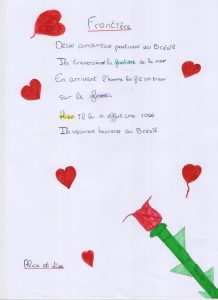 Frontière
Deux amoureux partirent au Brésil
Ils traversèrent la frontière de la mer
En arrivant l'homme lui fit un bisou
sur le front.
Hier il lui a offert une rose
Ils vécurent heureux au Brésil
Alice et Lise